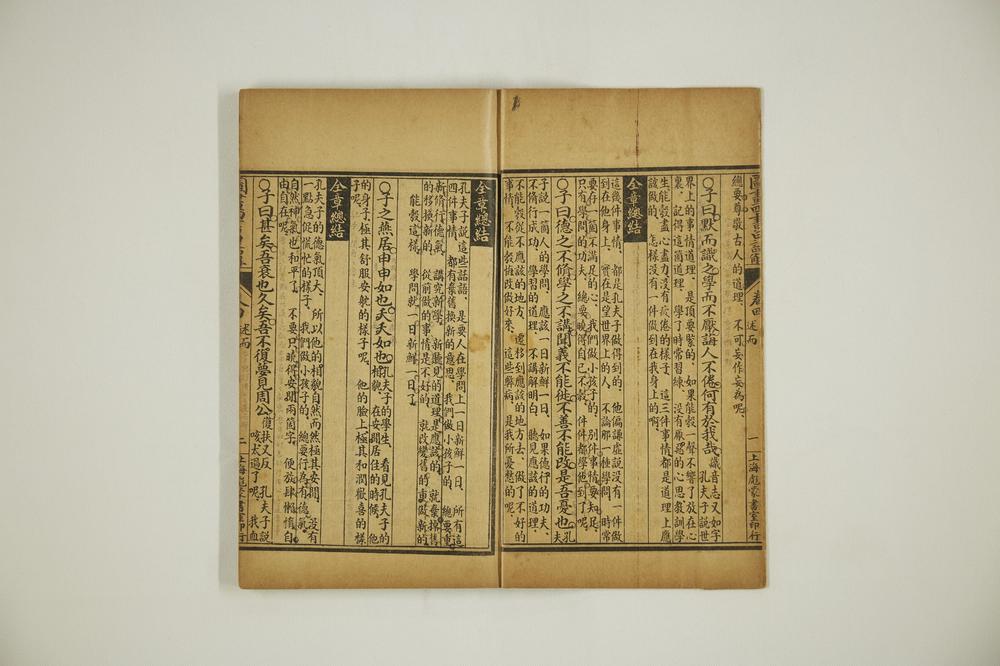 總要尊敬古人的道理、不可妄作妄爲呢、
○子曰默而識之學而不厭誨人不倦何有於我哉識音志又如字
孔夫子說世
界上的事情道理、是頂要緊的、如果能彀一聲不響了放在心
裏、記得這箇道理、學了時常習練、沒有厭惡的心思教訓學
生能彀盡心盡力沒有疲倦的樣子、這三件事情都是道理上應
該做的、怎樣沒有一件做到在我身上的啊、
全章總結
這幾件事情、都是孔夫子做得到的、他偏謙虛說沒有一件做
到在他身上、實在是望世界上的人、不論那一種學問、時常
要存一箇不滿足的心、我們做小孩子的、別件事情要知足、
只有學問的功夫、總要曉得自己不彀、件件都學絕到了呢、
○子曰德之不脩學之不講聞義不能徙不善不能改是吾憂也孔夫
子說一箇人的學問、應該一日新鮮一日、如果德行的功夫、
不脩行成功、學習的道理、不講解明白、聽見應該的道理、
不能彀從不應該的地方、遷移到應該的地方去、做了不好的
事情、不能彀悔改做好來、這些弊病、是我所憂愁的呢、
卷四 述而
一 上海彪蒙書室印行
全章總結
孔夫子說這些話語、是要人在學問上一日新鮮一日、所有這
四件事情、都有棄舊換新的意思、我們做小孩子的、總要重
新脩行德氣、講究新學、新聽見的道理是應該的、就棄掉舊
的移換新的、從前做的事情是不好的、就改變舊的重做新的
能彀這樣、學問就一日新鮮一日了、
○子之燕居申申如也夭夭如也孔夫子的學生、看見孔夫子的
相貌、在安閒居住的時候、他
的身子、極其舒服安躭的樣子呢、他的臉上極其和潤歡喜的樣
子呢、
全章總結
孔夫子的德氣頂大、所以他的相貌自然而然極其安閒、沒有
一點急促慌忙的樣子、我們做小孩子的、總要行爲有德氣、
自然神氣也和平了、不要只曉得安閒兩箇字、便放肆懶惰自
由自在呢、
○子曰甚矣吾衰也久矣吾不復夢見周公復扶又反、孔夫子說
咳太過了呢、我血
卷四 述而
二 上海彪蒙書室印行